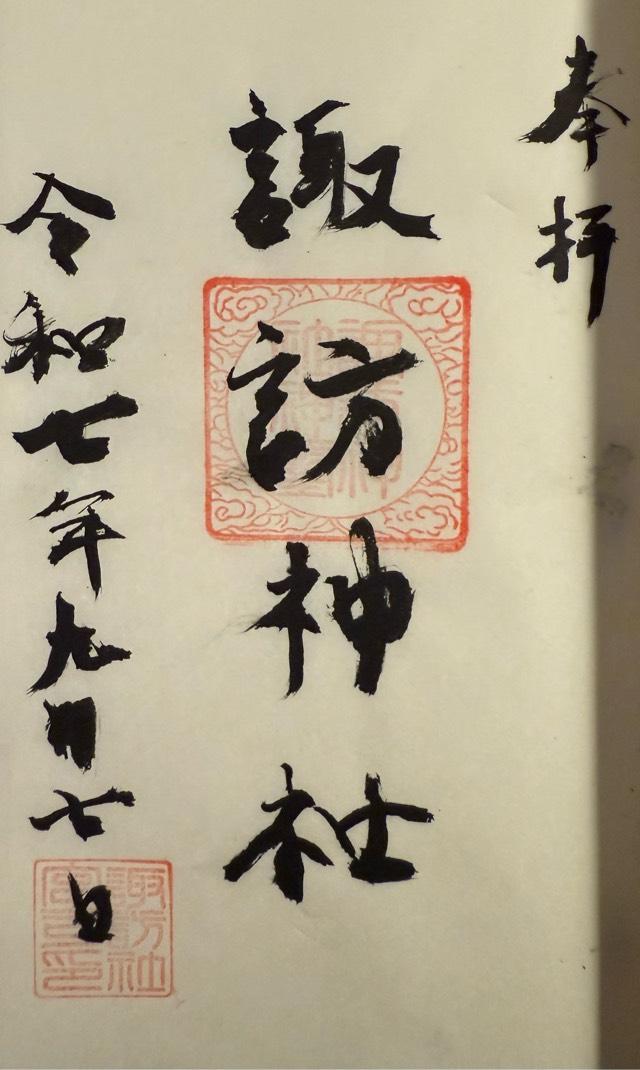 奉拝
諏訪神社
令和七年九月七日
諏訪神社
諏訪社宮司印